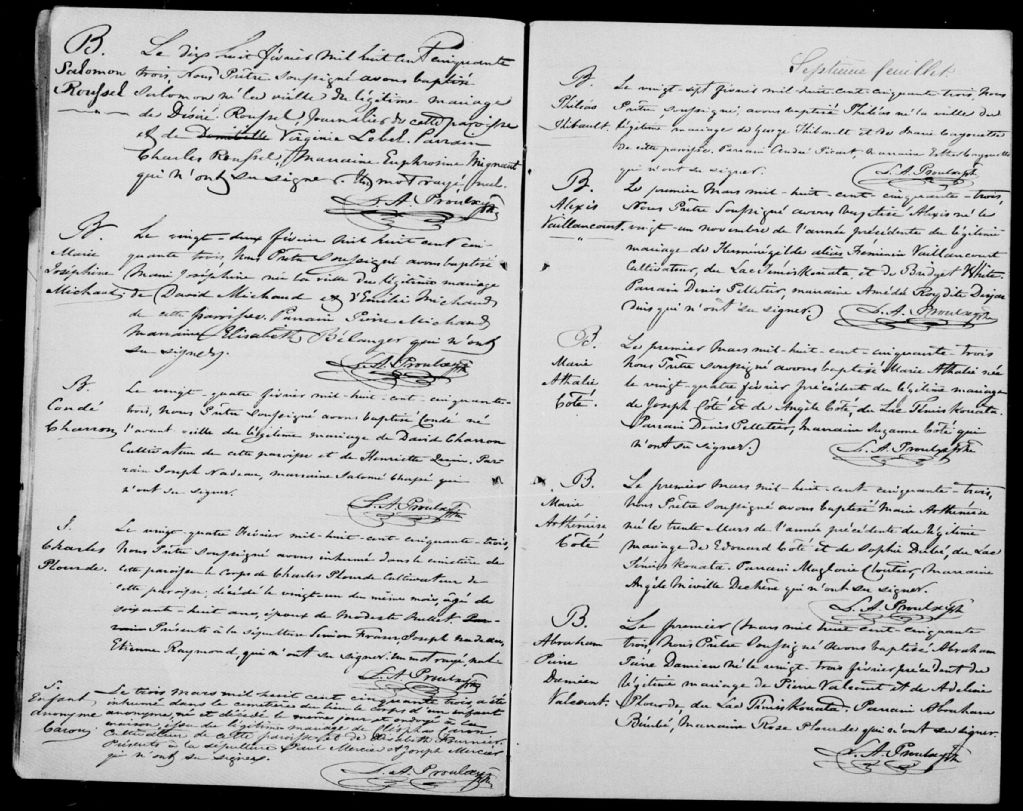 B.
Salomon
Roussel
Le dix huit février mil huit cent cinquante
trois, Nous Prêtre Soussigné avons baptisé
Salomon né la veille du légitime mariage
de Désiré Roussel, Journalier de cette paroisse
et de Virginie Lebel. Parrain
Charles Roussel, Marraine Euphrosine Mignaut
qui n'ont su signer. Un mot rayé nul.
L. A. Proulx Ptre
B.
Marie
Joséphine
Michaud
Le vingt-deux février mil huit cent cin-
quante trois, Nous Prêtre Soussigné avons baptisé
Marie Joséphine née la veille du légitime mariage
de David Michaud et d'Emilie Michaud
de cette paroisse. Parrain Pierre Michaud
marraine Elisabeth Bélanger qui n'ont
su signer.
L. A. Proulx Ptre
B.
Condé
Charron
Le vingt-quatre février mil-huit-cent-cinquante-
trois, Nous Prêtre Soussigné avons baptisé Condé né
l'avant veille du légitime mariage de David Charron
Cultivateur de cette paroisse et de Henriette. Par-
rain Joseph Nadeau, marraine Salomé qui
n'ont su signer.
L. A. Proulx Ptre
S.
Charles
Plourde.
Le vingt-quatre Février mil-huit-cent-cinquante-trois,
Nous Prêtre Soussigné avons inhumé dans le cimetière de
cette paroisse le corps de Charles Plourde Cultivateur de
cette paroisse, décédé le vingt-un du même mois âgé de
soixante-huit ans, époux de Modeste
Présents à la sépulture Simon Fraser, Joseph Nadeau,
Etienne Raymond, qui n'ont su signer. un mot rayé nul
L. A. Proulx Ptre
S.
Enfant
anonyme
Caron.
Le trois mars mil huit cent cinquante trois, a été
inhumé dans le cimetière du lieu le corps d'un enfant
anonyme, né et décédé le même jour et ondoyé à la
maison, issu du légitime mariage de Caron
Cultivateur de cette paroisse et de Fournier.
Présents à la sépulture Paul Mercier et Joseph Mercier
qui n'ont su signer.
L. A. Proulx Ptre
Septième feuillet
B.
Philéas
Thibault.
Le vingt-sept février mil-huit-cent-cinquante-trois, Nous
Prêtre, soussigné, avons baptisé Philéas né la veille du
légitime mariage de George Thibault et de Marie
de cette paroisse. Parrain André Picard, marraine Esther
qui n'ont su signer.
L. A. Proulx Ptre
B.
Alexis
Vaillancourt
Le premier Mars mil-huit-cent-cinquante-trois,
Nous Prêtre Soussigné avons baptisé Alexis né le
vingt-un novembre de l'année précédente du légitime
mariage de Herménégilde alias Fréminin Vaillancourt
Cultivateur, du Lac Témiskouata, et de Bridget White
Parrain Denis Pelletier, marraine Amédé Roy dite Desjar-
dins qui n'ont su signer.
L. A. Proulx Ptre
B.
Marie
Athalie
Côté.
Le premier Mars mil-huit-cent-cinquante-trois
Nous Prêtre soussigné avons baptisé Marie Athalie née
le vingt-quatre février précédent du légitime mariage
de Joseph Côté et de Angèle Côté, du Lac Témiskouata.
Parrain Denis Pelletier, Marraine Suzanne Côté qui
n'ont su signer.
L. A. Proulx Ptre
B.
Marie
Arthémise
Côté
Le premier Mars mil-huit-cent-cinquante-trois,
Nous Prêtre Soussigné avons baptisé Marie Arthémise
née le trente Mars de l'année précédente du légitime
mariage de Edouard Côté et de Sophie Dubé, du Lac
Témiskouata. Parrain Magloire Cloutier, Marraine
Angèle Miville Deschêne qui n'ont su signer.
L. A. Proulx Ptre
B.
Abraham
Pierre
Damien
Valcourt.
Le premier Mars mil huit cent cinquante
trois, Nous Prêtre Soussigné avons baptisé Abraham
Pierre Damien né le vingt-trois février précédent du
légitime mariage de Pierre Valcourt et de Adeline
Plourde, du Lac Témiskouata. Parrain Abraham
Bérubé, Marraine Rose Plourde, qui n'ont su signer.
L. A. Proulx Ptre